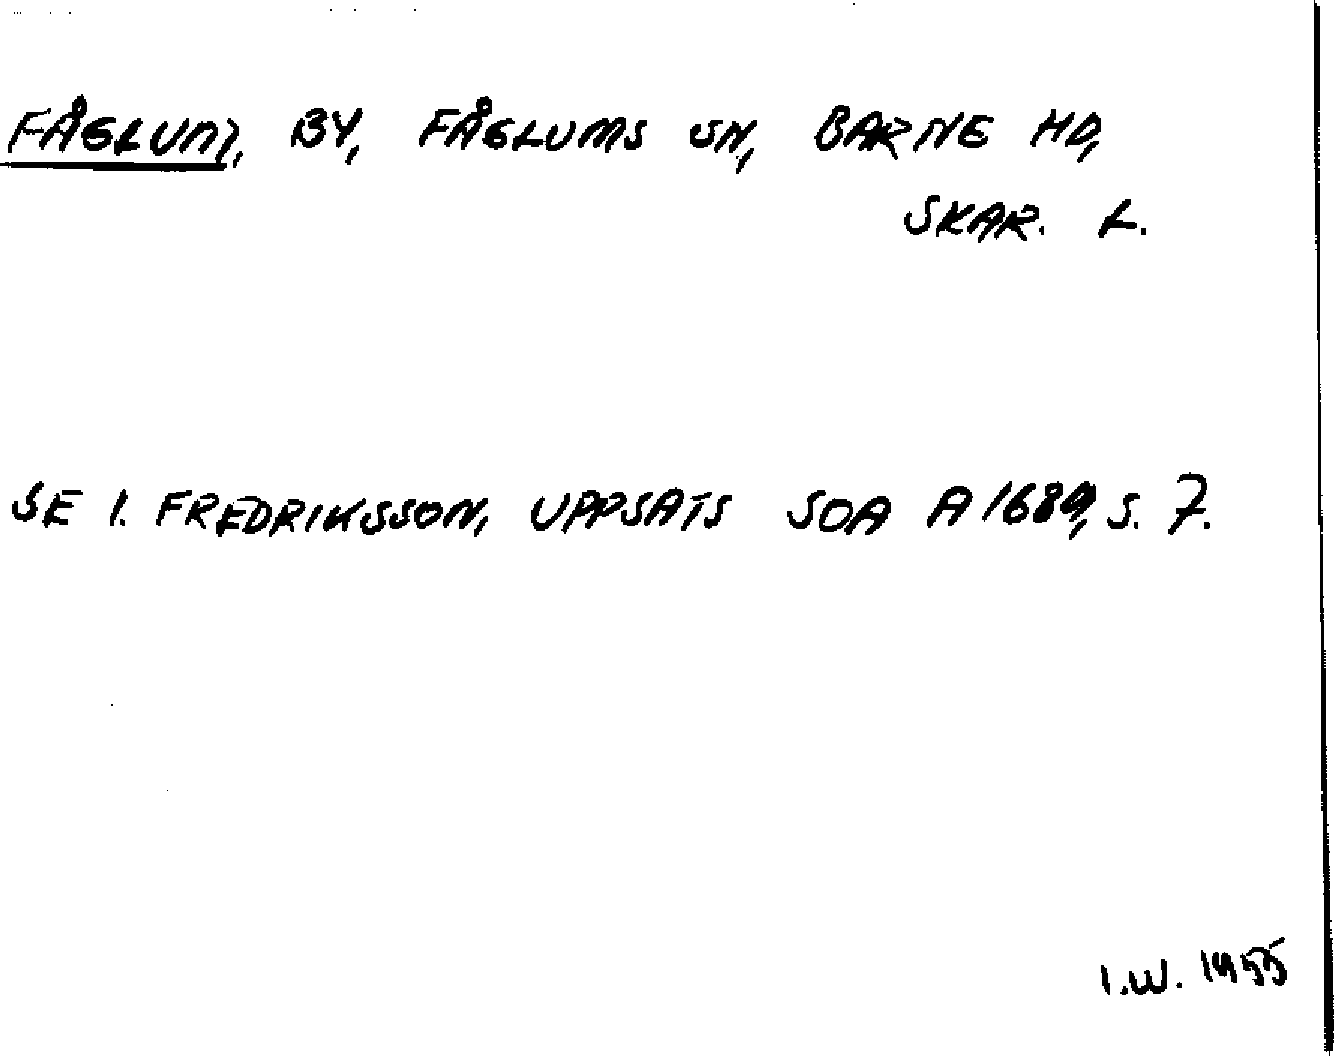 FÅGLUM, BY, FÅGLUMS SN, BARNE HD,
SKAR. L.
SE I. FREDRIKSSON, UPPSATS SOA A 1689, S. 7.
I.W. 1955